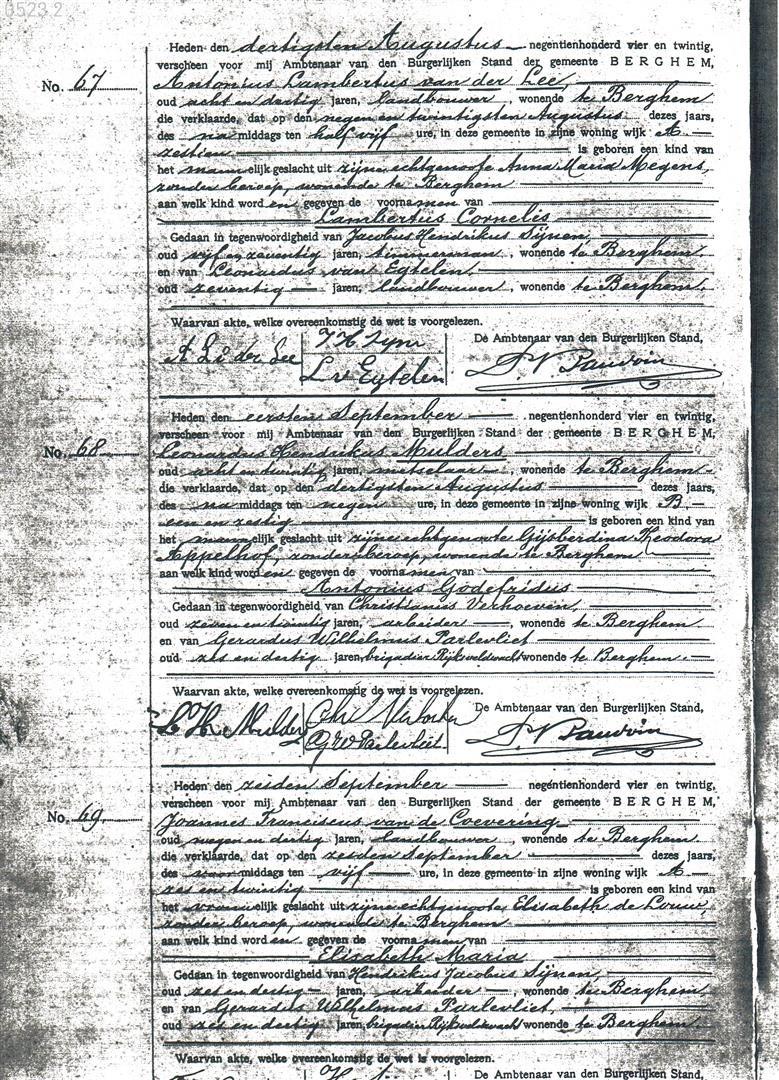 0523 2
Heden den dertigsten Augustus negentienhonderd vier en twintig,
verscheen voor mij Ambtenaar van den Burgerlijken Stand der gemeente BERGHEM,
No. 67
Antonius Lambertus van der Lee,
oud acht en dertig jaren, landbouwer, wonende te Berghem
die verklaarde, dat op den negen en twintigsten Augustus dezes jaars,
des na middags ten half vijf ure, in deze gemeente in zijne woning wijk A.
zestien is geboren een kind van
het mannelijk geslacht uit zijne echtgenoote Anna Maria Megens,
zonder beroep, wonende te Berghem
aan welk kind worden gegeven de voornamen van
Lambertus Cornelis
Gedaan in tegenwoordigheid van Jacobus Hendrikus Sijnen,
oud vijf en zeventig jaren, timmerman, wonende te Berghem
en van Leonardus van Eytelen.
oud zeventig jaren, landbouwer, wonende te Berghem.
Waarvan akte, welke overeenkomstig de wet is voorgelezen.
De Ambtenaar van den Burgerlijken Stand,
A L v der Lee
L v Eytelen
Heden den eersten September negentienhonderd vier en twintig,
verscheen voor mij Ambtenaar van den Burgerlijken Stand der gemeente BERGHEM,
No. 68
Leonardus Hendrikus Mulders
oud acht en twintig jaren, metselaar, wonende te Berghem
die verklaarde, dat op den dertigsten Augustus dezes jaars,
des na middags ten negen ure, in deze gemeente in zijne woning wijk B
een en zestig is geboren een kind van
het mannelijk geslacht uit zijne echtgenoote Gijsberdina Theodora
Appelhof, zonder beroep, wonende te Berghem
aan welk kind worden gegeven de voornamen van
Antonius Godefridus
Gedaan in tegenwoordigheid van Christianus Verhoeven,
oud zeven en twintig jaren, arbeider, wonende te Berghem
en van Gerardus Wilhelmus Parlevliet
oud zes en dertig jaren, brigadier Rijksveldwacht wonende te Berghem.
Waarvan akte, welke overeenkomstig de wet is voorgelezen.
De Ambtenaar van den Burgerlijken Stand,
L. H. Mulders
GW Parlevliet.
Heden den zesden September negentienhonderd vier en twintig,
verscheen voor mij Ambtenaar van den Burgerlijken Stand der gemeente BERGHEM,
No. 69
Joannes Franciscus van de Coevering
oud negen en dertig jaren, landbouwer, wonende te Berghem
die verklaarde, dat op den zesden September dezes jaars,
des voor middags ten vijf ure, in deze gemeente in zijne woning wijk A
zes en twintig is geboren een kind van
het vrouwelijk geslacht uit zijne echtgenoote Elisabeth de Louw,
zonder beroep, wonende te Berghem
aan welk kind worden gegeven de voornamen van
Elisabeth Maria
Gedaan in tegenwoordigheid van Hendrikus Jacobus Sijnen,
oud zes en dertig jaren, arbeider, wonende te Berghem,
en van Gerardus Wilhelmus Parlevliet,
oud zes en dertig jaren, brigadier Rijksveldwacht wonende te Berghem.
Waarvan akte, welke overeenkomstig de wet is voorgelezen.
De Ambtenaar van den Burgerlijken Stand,